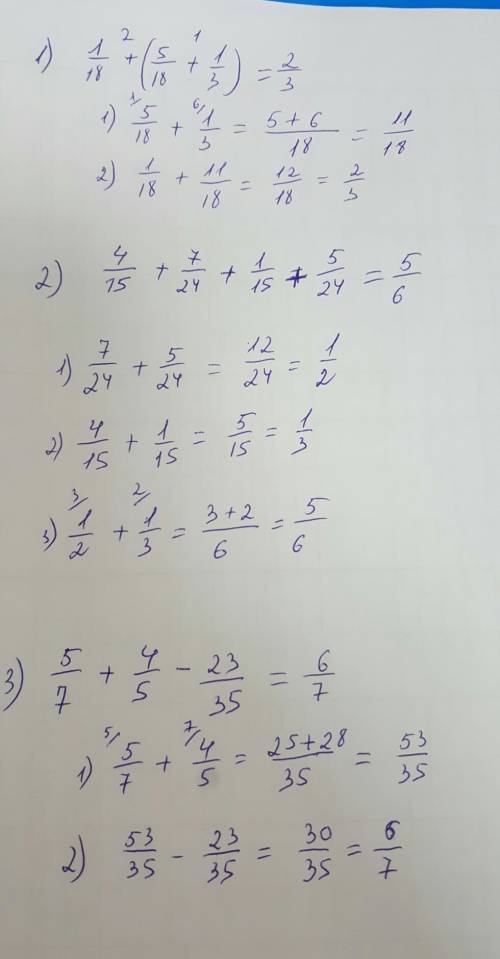 1) 1/18 +² (5/18 +¹ 1/3) = 2/3
1) ¹⁄5/18 + ⁶⁄1/3 = (5+6)/18 = 11/18
2) 1/18 + 11/18 = 12/18 = 2/3
2) 4/15 + 7/24 + 1/15 + 5/24 = 5/6
1) 7/24 + 5/24 = 12/24 = 1/2
2) 4/15 + 1/15 = 5/15 = 1/3
3) ³⁄1/2 + ²⁄1/3 = (3+2)/6 = 5/6
3) 5/7 + 4/5 − 23/35 = 6/7
1) ⁵⁄5/7 + ⁷⁄4/5 = (25+28)/35 = 53/35
2) 53/35 − 23/35 = 30/35 = 6/7